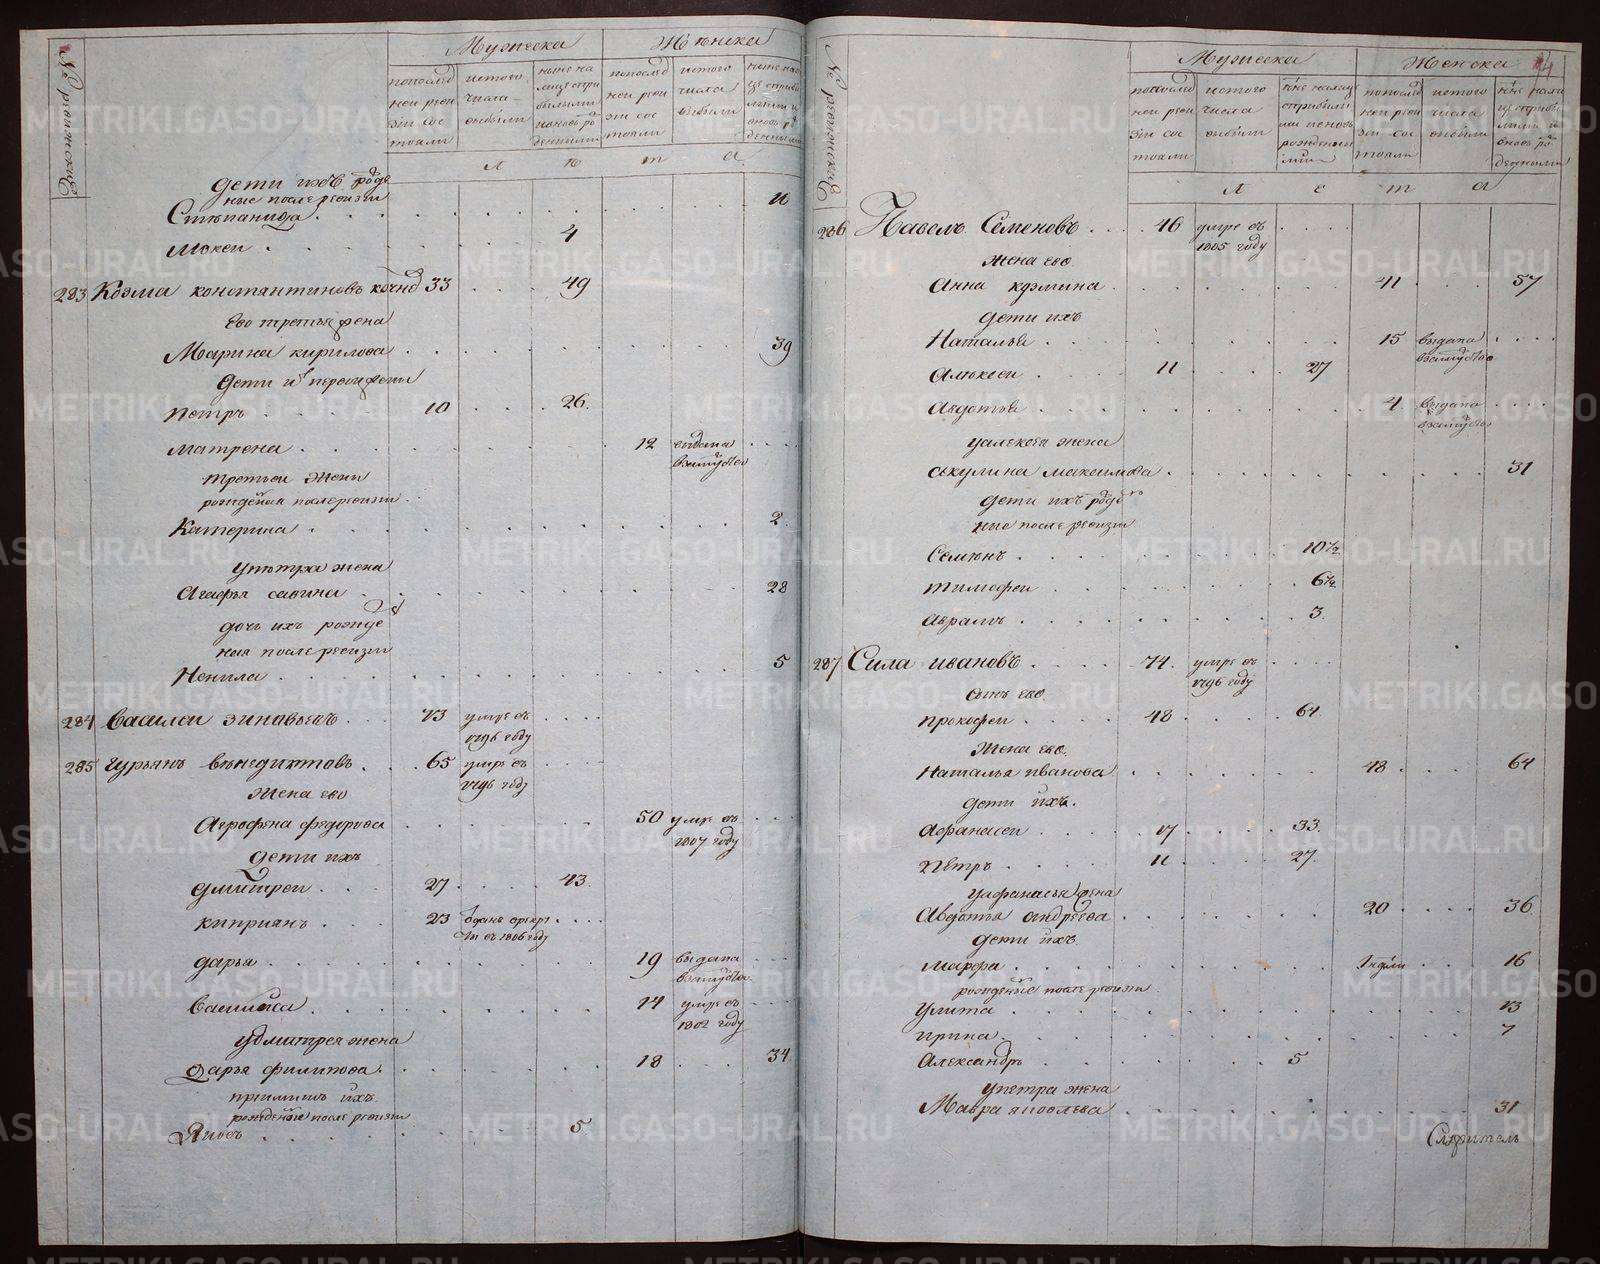 № ревижския
Мужеска
Женска
попослед ней реви зии сос тояли
истого числа выбыли
ныне на лице стри былыми ивновь ро денными
попослед ней реви зии сос тояли
истого числа выбыли
Л е т а
дети ихъ рожде
ные после ревизии
Степанида 10
Мокеи 4
283 Козма константиновъ 33 49
Ево третья жена
Марина кирилова 39
дети ихъ первой жены
Петръ 10 26
Матрена 12 выдана
взамужъство
третьей жены
рожденая после ревизии
Катерина 2
упетра жена
Агафья савина 28
дочь ихъ рожде
ная после ревизии
Ненила 5
284 Василеи зиновьевъ 73 умре въ
1796 году
285 Гурьянъ венедихтовъ 65 умре въ
1796 году
жена ево
Агрофена федорова 50 умре въ
1807 году
дети ихъ
дмитреи 27 43
киприянъ 23 вданъ врекру
ты въ 1806 году
дарья 19 выдана
взамужъство
Василиса 14 умре въ
1802 году
удмитрея жена
дарья филипова 18 34
приимышъ ихъ
рожденые после ревизии
Яковъ 5
№ ревижския
Мужеска
Женска
попослед ней реви зии сос тояли
истого числа выбыли
попослед ней реви зии сос тояли
истого числа выбыли
Л е т а
286 Павелъ Семеновъ 46 умре въ
1805 году
жена ево
Анна кузмина 41 57
дети ихъ
Наталья 15 выдана
взамужъство
Алексеи 11 27
Авдотья 4 выдана
взамужъство
уалексея жена
Окулина максимова 31
дети ихъ рожде
ные после ревизии
Семенъ 10 1/2
тимофеи 6 1/2
Аврамъ 3
287 Сила ивановъ 74 умре въ
1796 году
сынъ ево
прокофеи 48 64
жена ево
Наталья иванова 48 64
дети ихъ
Афанасеи 17 33
Петръ 11 27
уафанасья жена
Авдотья андреева 20 36
дети ихъ
марфа 1 недели 16
рожденые после ревизии
Улита 13
ирина 7
Александръ 5
упетра жена
Мавра яковлева 31
METRIKI.GASO-URAL.RU